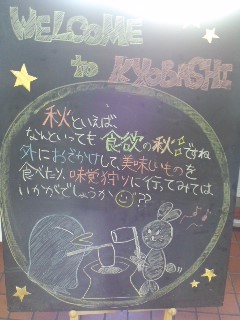 WELCOME
to KYOBASHI
秋といえば、
なんといっても食欲の秋ですね
外におでかけして、美味しいものを
食べたり、味覚狩りに行ってみては
いかがでしょうか??